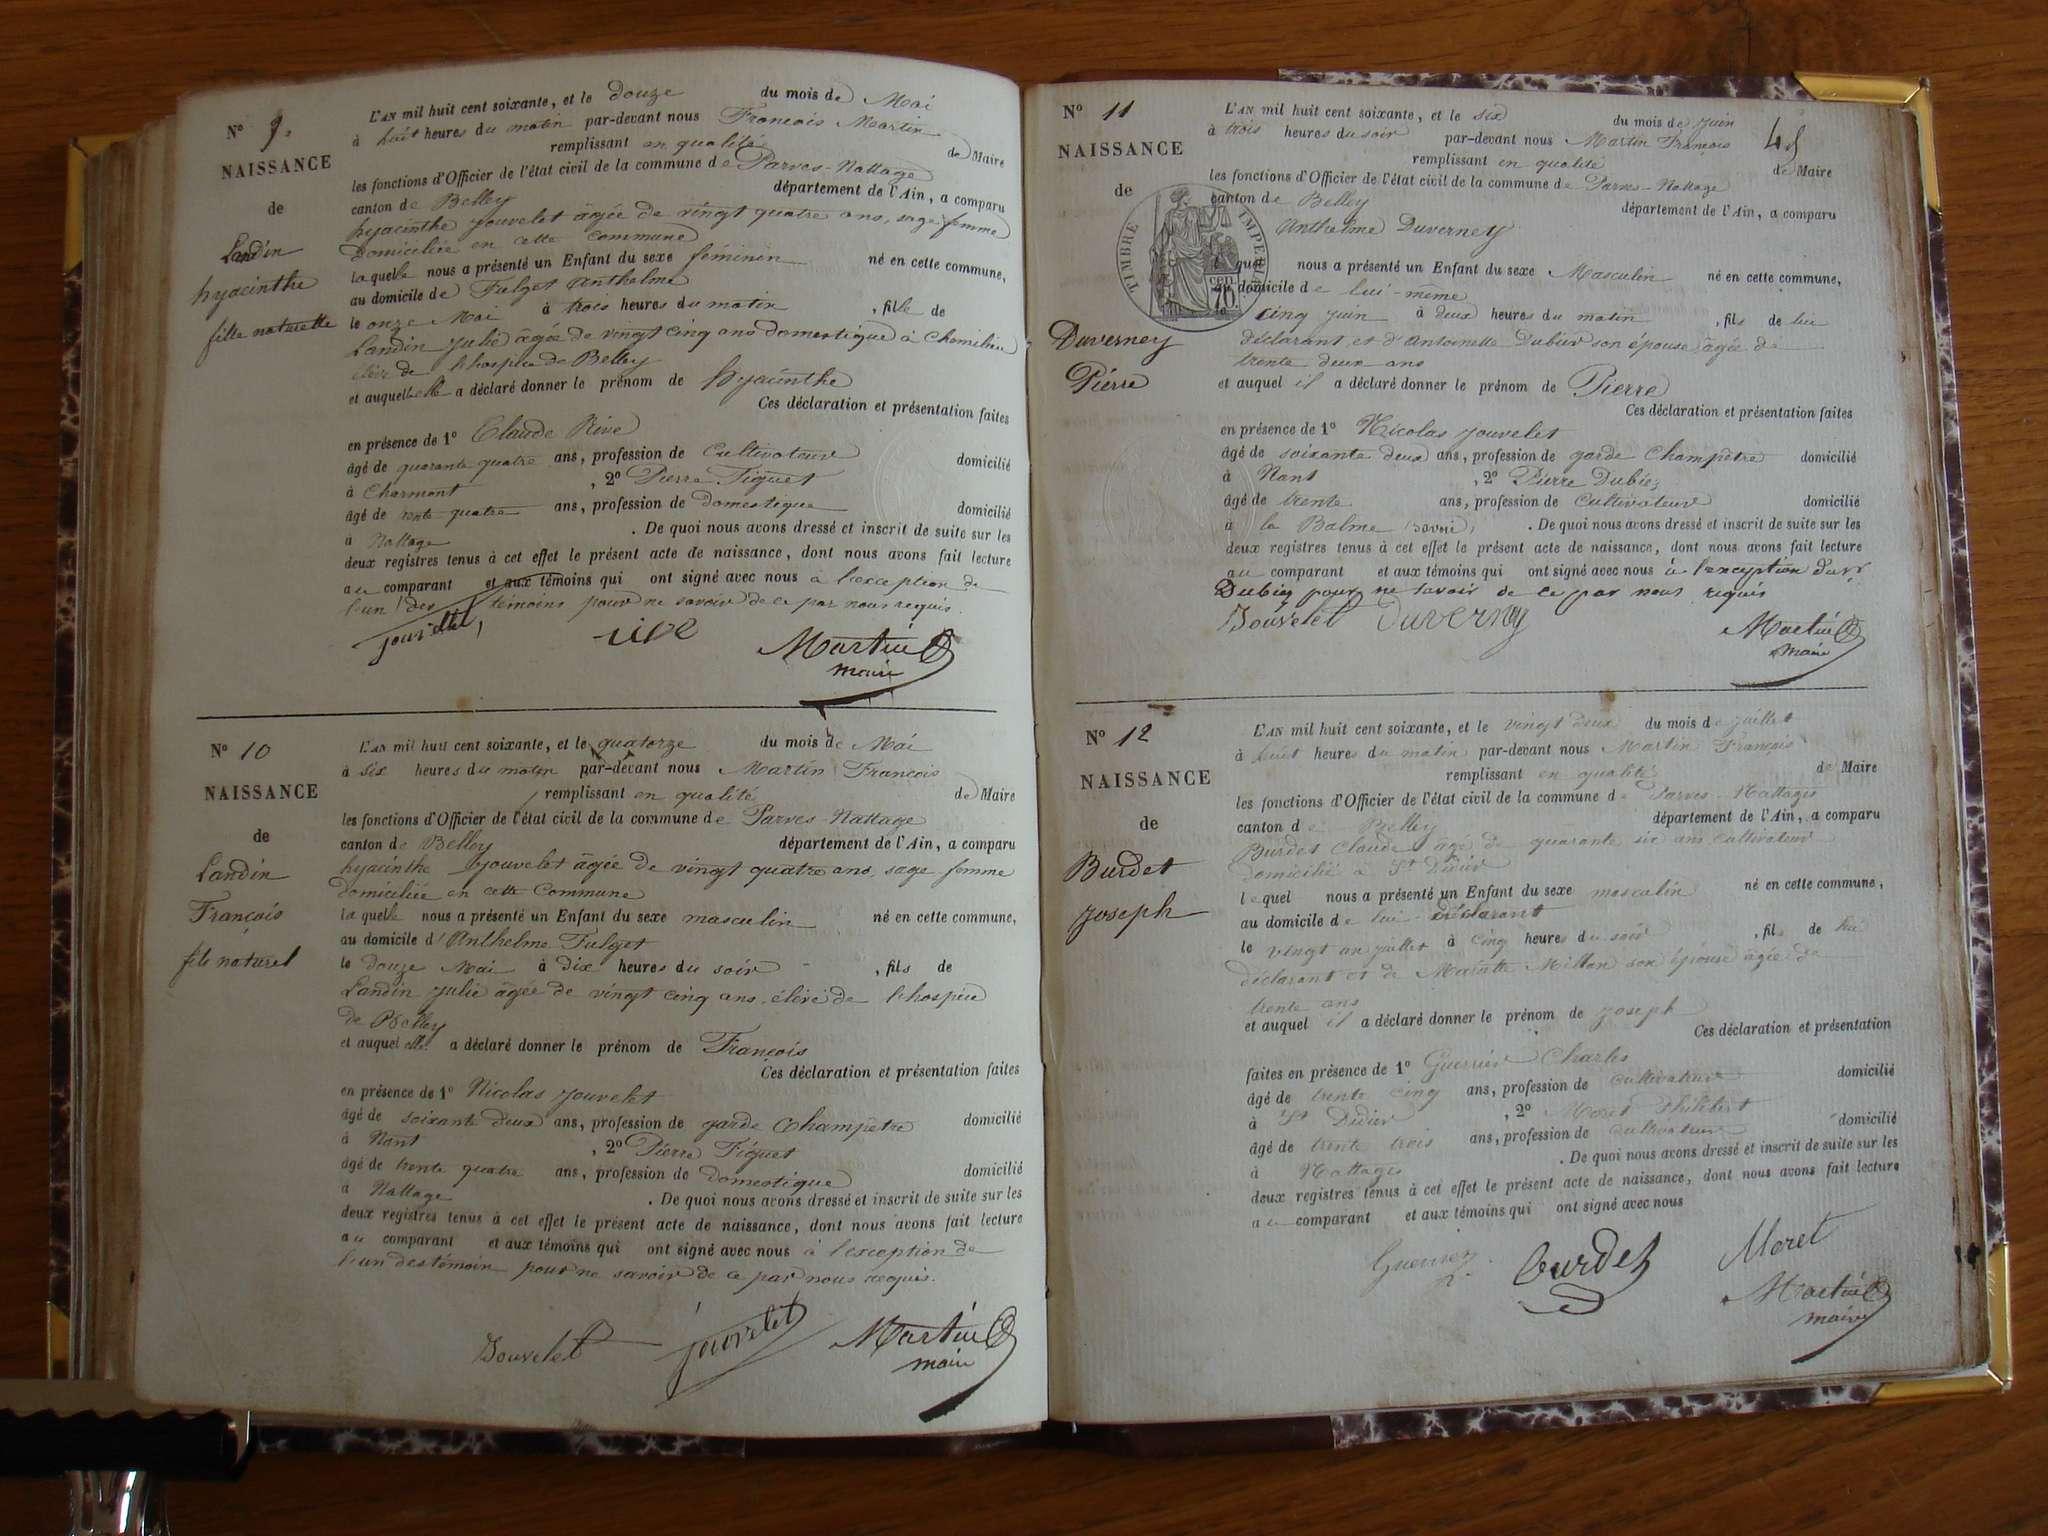 N° 9.
NAISSANCE
de
Landin
hyacinthe
fille naturelle
L'AN mil huit cent soixante, et le douze du mois de Mai
à huit heures du matin par-devant nous François Martin
remplissant en qualité de Maire
les fonctions d'Officier de l'état civil de la commune de Parves-Nattage
canton de Belley département de l'Ain, a comparu
hyacinthe jouvelet âgée de vingt quatre ans, sage femme
domiciliée en cette commune
laquelle nous a présenté un Enfant du sexe féminin né en cette commune,
au domicile de Fulget Anthelme
le onze Mai à trois heures du matin, fille de
Landin julie âgée de vingt cinq ans domestique à Chemilieu
élève de l'hospice de Belley
et auquel elle a déclaré donner le prénom de hyacinthe
Ces déclaration et présentation faites
en présence de 1° Claude Rive
âgé de quarante quatre ans, profession de Cultivateur domicilié
à Charmont, 2° Pierre Tiguet
âgé de trente quatre ans, profession de domestique domicilié
à Nattage. De quoi nous avons dressé et inscrit de suite sur les
deux registres tenus à cet effet le présent acte de naissance, dont nous avons fait lecture
au comparant et aux témoins qui ont signé avec nous à l'exception de
l'un des témoins pour ne savoir de ce par nous requis.
jouvelet, rive Martin
maire
N° 10
NAISSANCE
de
Landin
François
fils naturel
L'AN mil huit cent soixante, et le quatorze du mois de Mai
à six heures du matin par-devant nous Martin François
remplissant en qualité de Maire
les fonctions d'Officier de l'état civil de la commune de Parves-Nattage
canton de Belley département de l'Ain, a comparu
hyacinthe jouvelet âgée de vingt quatre ans, sage femme
domiciliée en cette Commune
laquelle nous a présenté un Enfant du sexe masculin né en cette commune,
au domicile d'Anthelme Fulget
le douze Mai à dix heures du soir, fils de
Landin julie âgée de vingt cinq ans élève de l'hospice
de Belley
et auquel elle a déclaré donner le prénom de François
Ces déclaration et présentation faites
en présence de 1° Nicolas jouvelet
âgé de soixante deux ans, profession de garde Champêtre domicilié
à Nant, 2° Pierre Tiguet
âgé de trente quatre ans, profession de domestique domicilié
à Nattage. De quoi nous avons dressé et inscrit de suite sur les
deux registres tenus à cet effet le présent acte de naissance, dont nous avons fait lecture
au comparant et aux témoins qui ont signé avec nous à l'exception de
l'un des témoin pour ne savoir de ce par nous requis.
Jouvelet jouvelet Martin
maire
N° 11
NAISSANCE
de
Duverney
Pierre
TIMBRE IMPERIAL
70 CEN
L'AN mil huit cent soixante, et le six du mois de juin
à trois heures du soir par-devant nous Martin François
remplissant en qualité de Maire
les fonctions d'Officier de l'état civil de la commune de Parves-Nattage
canton de Belley département de l'Ain, a comparu
Anthelme Duverney
lequel nous a présenté un Enfant du sexe Masculin né en cette commune,
au domicile de lui-même
le cinq juin à deux heures du matin, fils de lui
déclarant et d'Antoinette Dubiez son épouse âgée de
trente deux ans
et auquel il a déclaré donner le prénom de Pierre
Ces déclaration et présentation faites
en présence de 1° Nicolas jouvelet
âgé de soixante deux ans, profession de garde Champêtre domicilié
à Nant, 2° Pierre Dubiez
âgé de trente ans, profession de Cultivateur domicilié
à la Balme (Savoie). De quoi nous avons dressé et inscrit de suite sur les
deux registres tenus à cet effet le présent acte de naissance, dont nous avons fait lecture
au comparant et aux témoins qui ont signé avec nous à l'exception du
Dubiez pour ne savoir de ce par nous requis
Jouvelet Duverney Martin
maire
N° 12
NAISSANCE
de
Burdet
joseph
L'AN mil huit cent soixante, et le vingt deux du mois de juillet
à huit heures du matin par-devant nous Martin François
remplissant en qualité de Maire
les fonctions d'Officier de l'état civil de la commune de Parves-Nattages
canton de Belley département de l'Ain, a comparu
Burdet Claude âgé de quarante six ans cultivateur
domicilié à St Didier
lequel nous a présenté un Enfant du sexe masculin né en cette commune,
au domicile de lui déclarant
le vingt un juillet à cinq heures du soir, fils de lui
déclarant et de Millon son épouse âgée de
trente ans
et auquel il a déclaré donner le prénom de joseph
Ces déclaration et présentation
faites en présence de 1° Guerrier Charles
âgé de trente cinq ans, profession de cultivateur domicilié
à St Didier, 2° Moret Philibert
âgé de trente trois ans, profession de cultivateur domicilié
à Nattages. De quoi nous avons dressé et inscrit de suite sur les
deux registres tenus à cet effet le présent acte de naissance, dont nous avons fait lecture
au comparant et aux témoins qui ont signé avec nous
Burdet Moret
Martin
maire